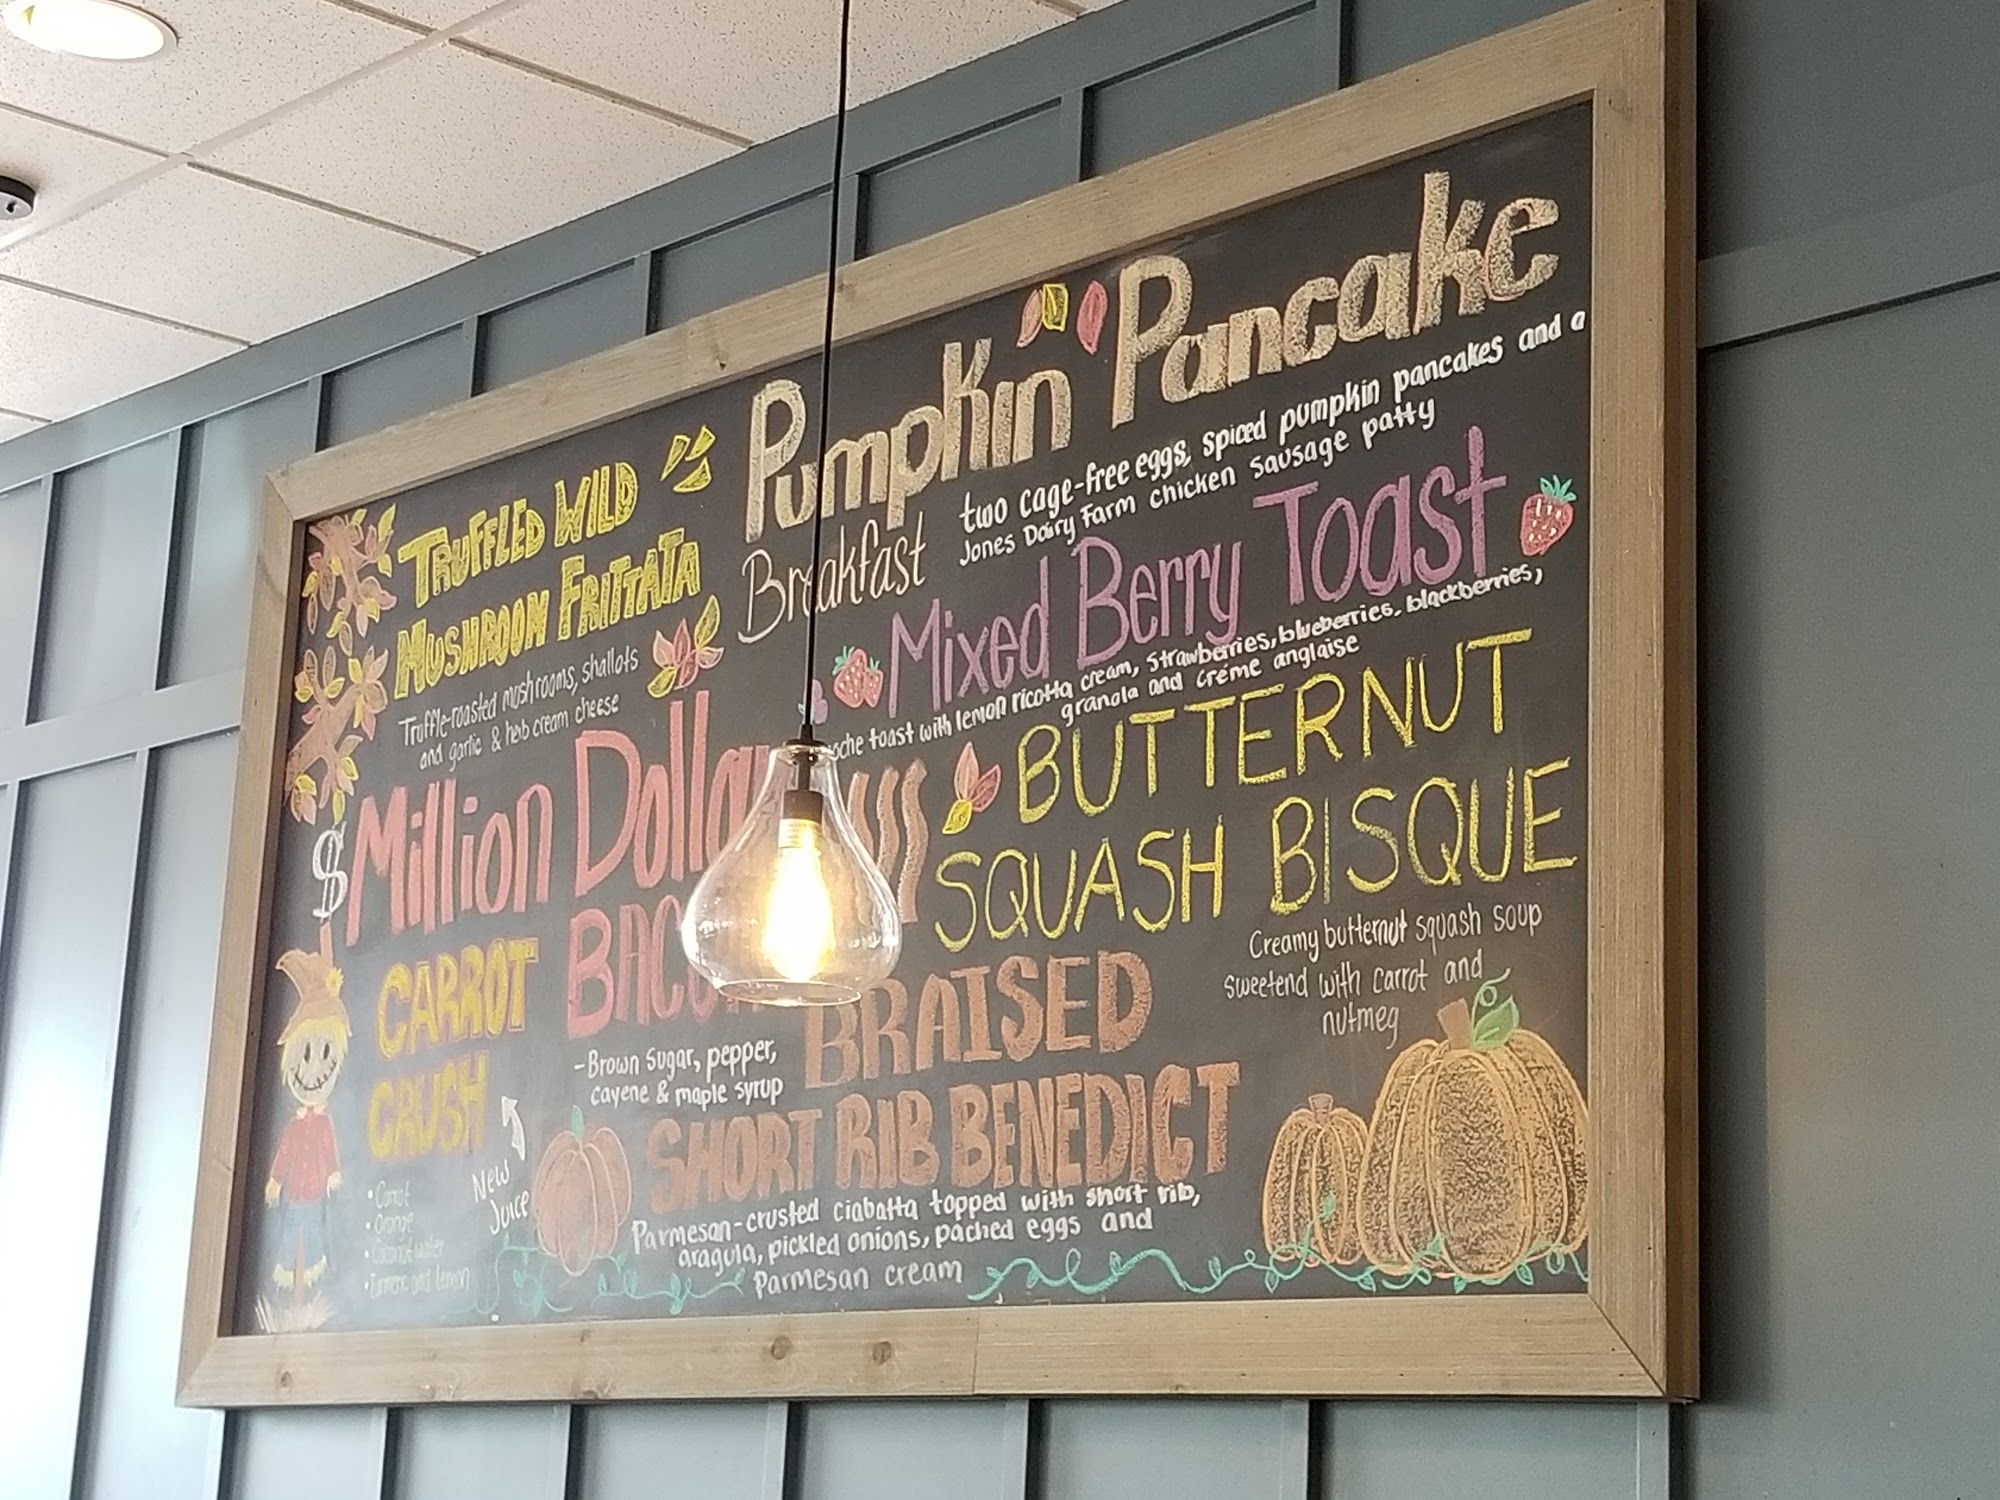 TRUFFLED WILD
MUSHROOM FRITTATA
Truffle-roasted mushrooms, shallots
and garlic & herb cream cheese
Pumpkin Pancake
Breakfast
two cage-free eggs, spiced pumpkin pancakes and a
Jones Dairy Farm chicken sausage patty
Mixed Berry Toast
toast with lemon ricotta cream, strawberries, blueberries, blackberries,
granola and créme anglaise
$ Million Dollar
BACON
-Brown Sugar, pepper,
cayene & maple syrup
BUTTERNUT
SQUASH BISQUE
Creamy butternut squash soup
sweetend with carrot and
nutmeg
CARROT
CRUSH
New
Juice
• Carrot
• Orange
• Coconut water
• Turmeric and lemon
BRAISED
SHORT RIB BENEDICT
Parmesan-crusted ciabatta topped with short rib,
aragula, pickled onions, pached eggs and
Parmesan cream